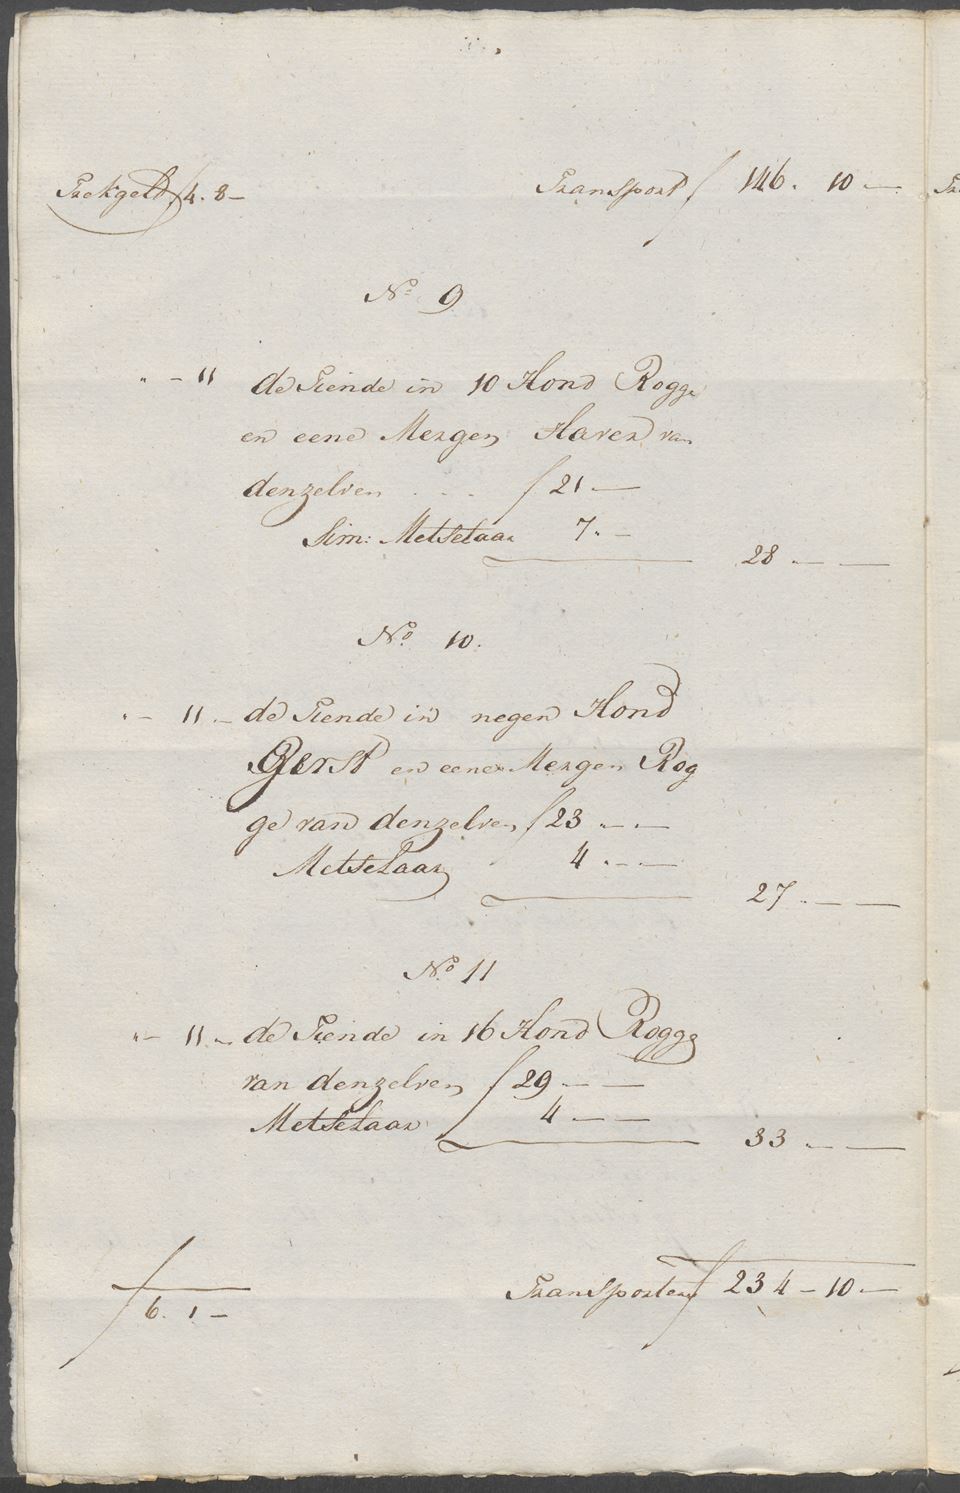 Trekgelt f 4. 8 —
Transport f 146. 10 —
No 9
" — 11 de Tiende in 10 Hond Rogge
en eene Mergen Haver van
denzelven . . . f 21 —
Sim: Metselaar 7. —
28 . — —
No. 10.
" — 11 . — de Tiende in negen Hond
Gerst en eene Mergen Rog
ge van denzelven f 23 . — —
Metselaar 4 . — —
27 . — —
No. 11
" — 11 . — de Tiende in 16 Hond Rogge
van denzelven f 29 — —
Metselaar 4 — —
33 . — —
f 6. 1 —
Transporten f 234 — 10 . —